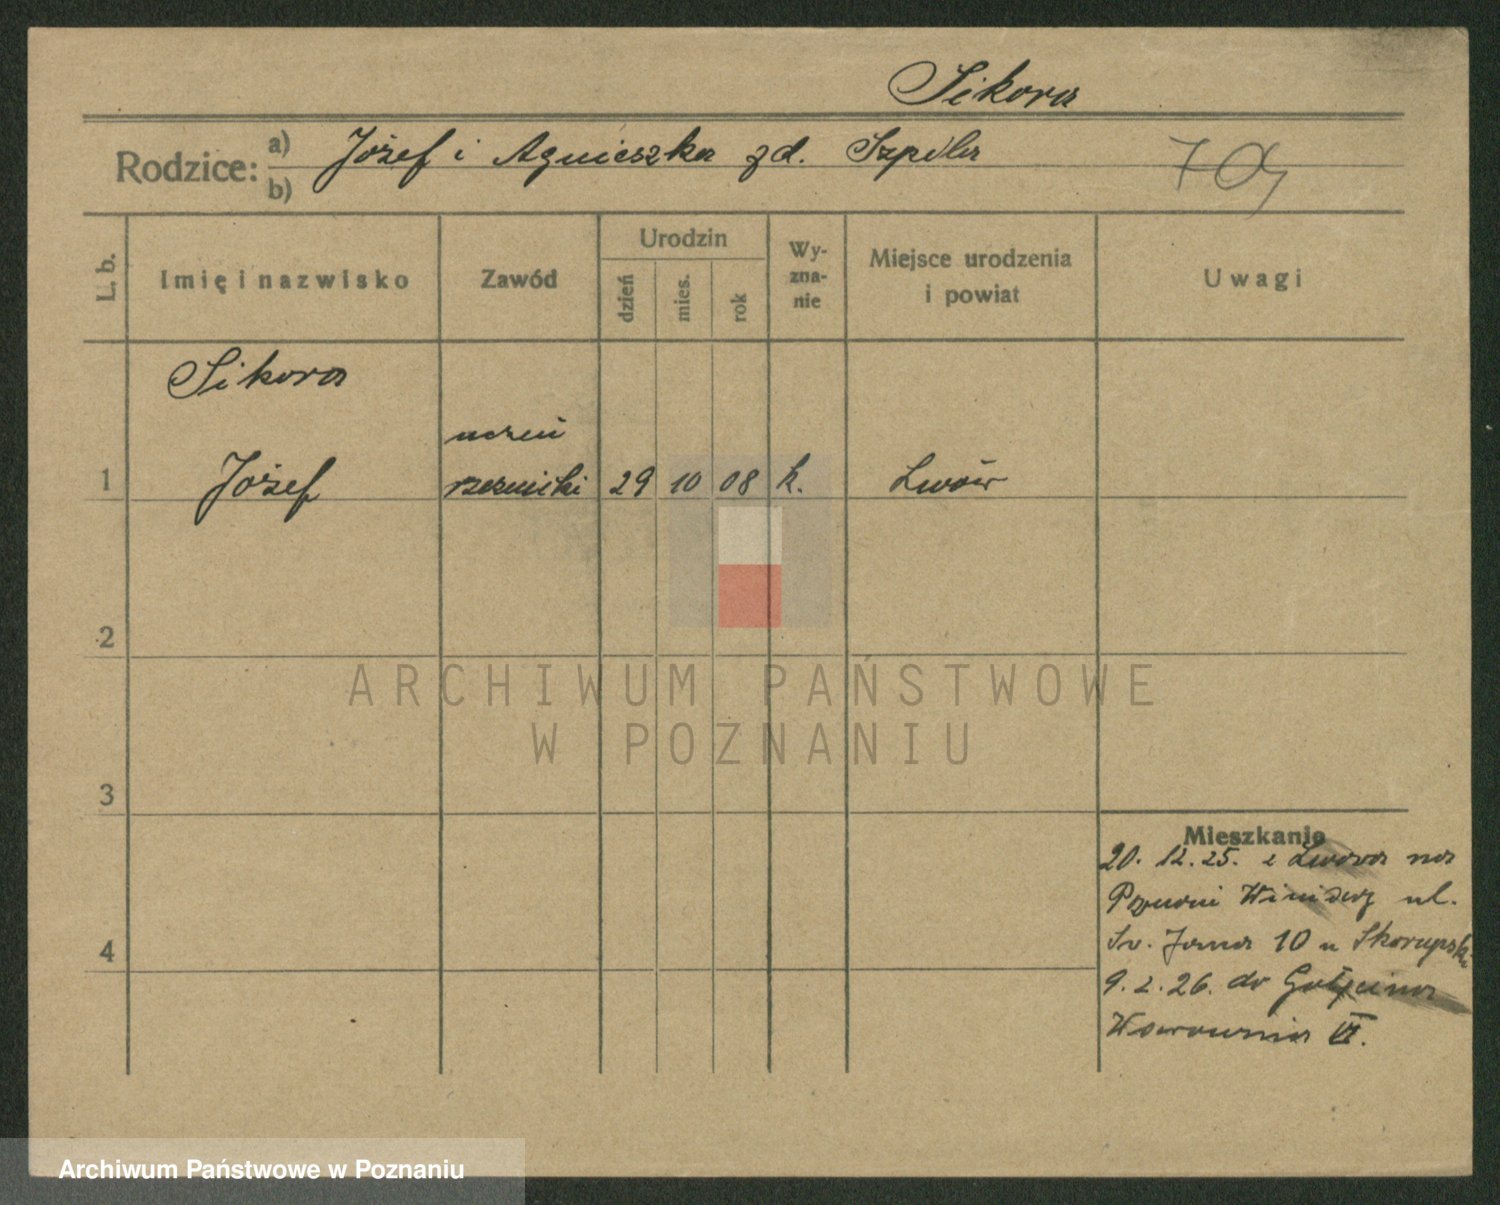 Sikora
Rodzice: a) Józef i Agnieszka zd. Szpila
b)
L. b.
Imię i nazwisko
Zawód
Urodzin
dzień
mies.
rok
Wy-
zna-
nie
Miejsce urodzenia
i powiat
Uwagi
Sikora
uczeń
1 Józef rzeźnicki 29 10 08 k. Lwów
2
3
4
Mieszkanie
20. 12. 25. z Lwowa na
ul.
Św. Jana 10 u Skorupski
9. 2. 26. do Golęcina
Warownia VI.
ARCHIWUM PAŃSTWOWE
W POZNANIU
Archiwum Państwowe w Poznaniu